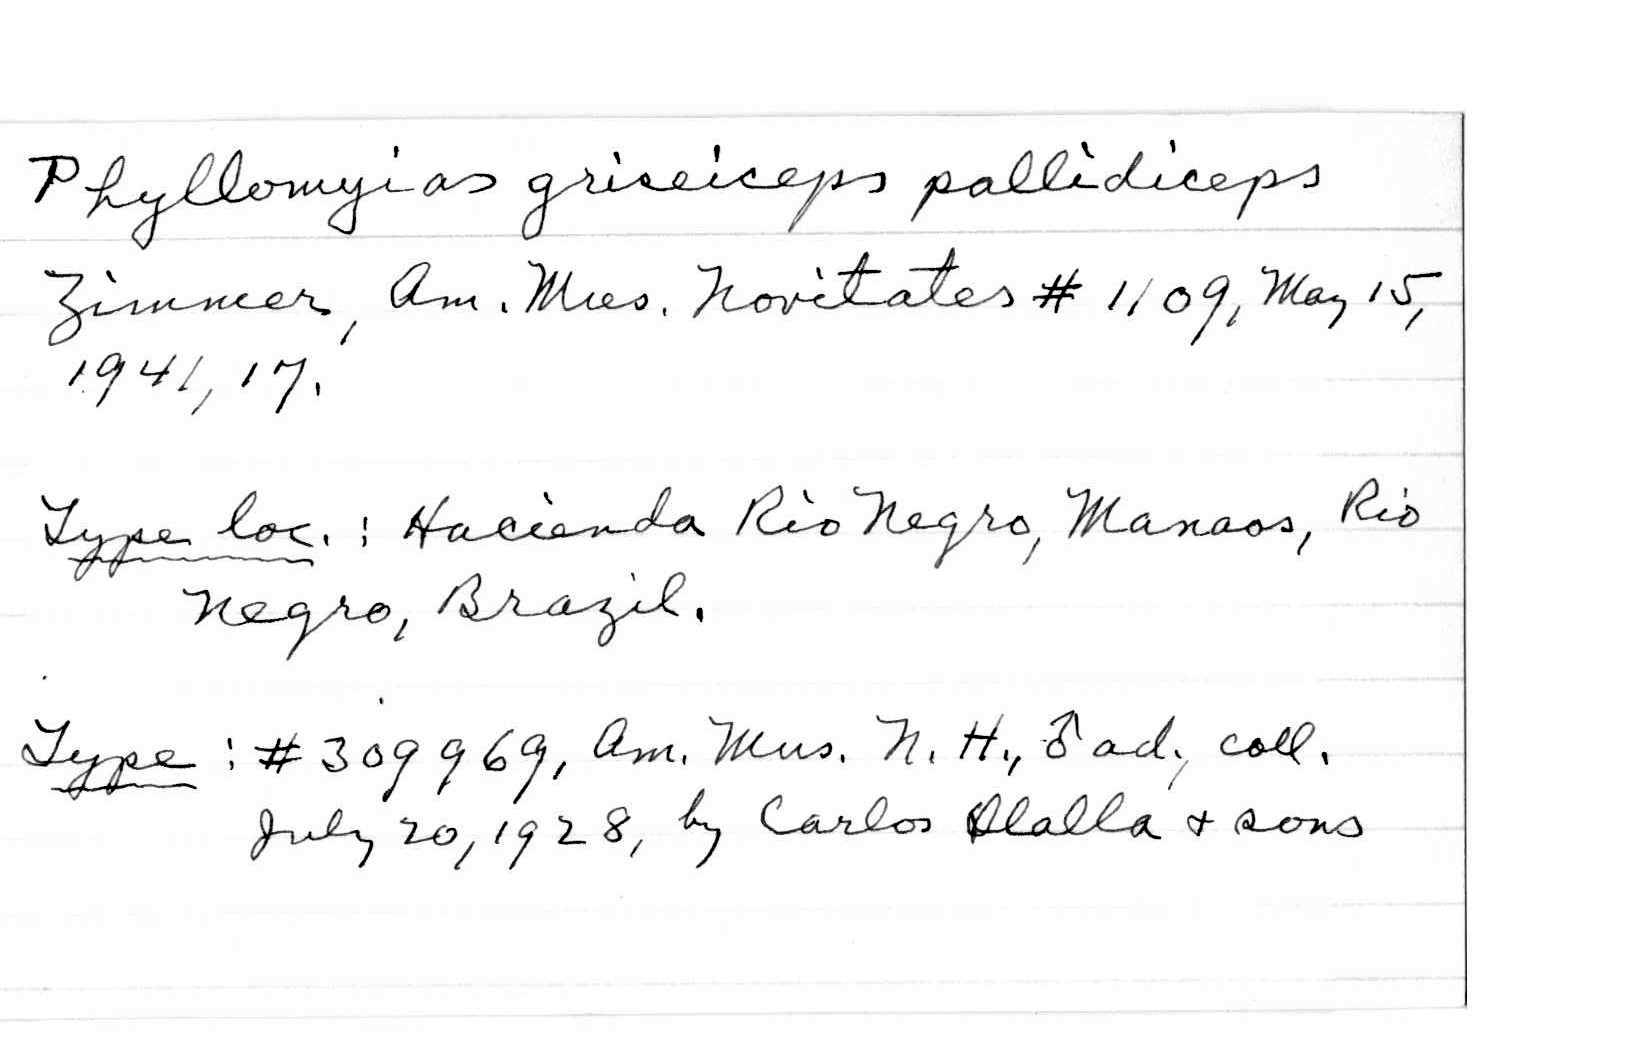 Phyllomyias griseiceps pallidiceps
Zimmer, Am. Mus. Novitates # 1109, May 15,
1941, 17.
Type loc.: Hacienda Rio Negro, Manaos, Rio
Negro, Brazil.
Type: # 309969, Am. Mus. N. H., ♂ ad., coll.
July 20, 1928, by Carlos Olalla + sons